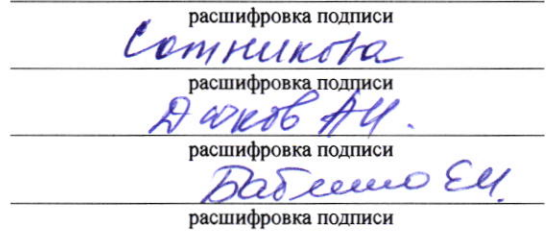 расшифровка подписи
Сотникова
расшифровка подписи
Дюков АИ.
расшифровка подписи
ЕИ.
расшифровка подписи